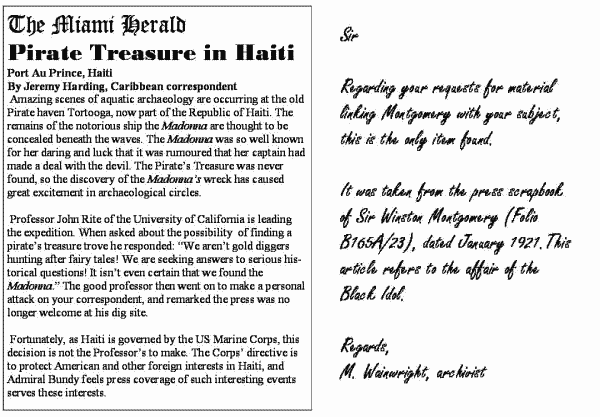 The Miami Herald
Pirate Treasure in Haiti
Port Au Prince, Haiti
By Jeremy Harding, Caribbean correspondent
Amazing scenes of aquatic archaeology are occurring at the old
Pirate haven Tortooga, now part of the Republic of Haiti. The
remains of the notorious ship the Madonna are thought to be
concealed beneath the waves. The Madonna was so well known
for her daring and luck that it was rumoured that her captain had
made a deal with the devil. The Pirate's Treasure was never
found, so the discovery of the Madonna's wreck has caused
great excitement in archaeological circles.
Professor John Rite of the University of California is leading
the expedition. When asked about the possibility of finding a
pirate's treasure trove he responded: “We aren't gold diggers
hunting after fairy tales! We are seeking answers to serious his-
torical questions! It isn't even certain that we found the
Madonna.” The good professor then went on to make a personal
attack on your correspondent, and remarked the press was no
longer welcome at his dig site.
Fortunately, as Haiti is governed by the US Marine Corps, this
decision is not the Professor's to make. The Corps' directive is
to protect American and other foreign interests in Haiti, and
Admiral Bundy feels press coverage of such interesting events
serves these interests.
Sir
Regarding your requests for material
linking Montgomery with your subject,
this is the only item found.
It was taken from the press scrapbook
of Sir Winston Montgomery (Folio
B165A/23), dated January 1921. This
article refers to the affair of the
Black Idol.
Regards,
M. Wainwright, archivist